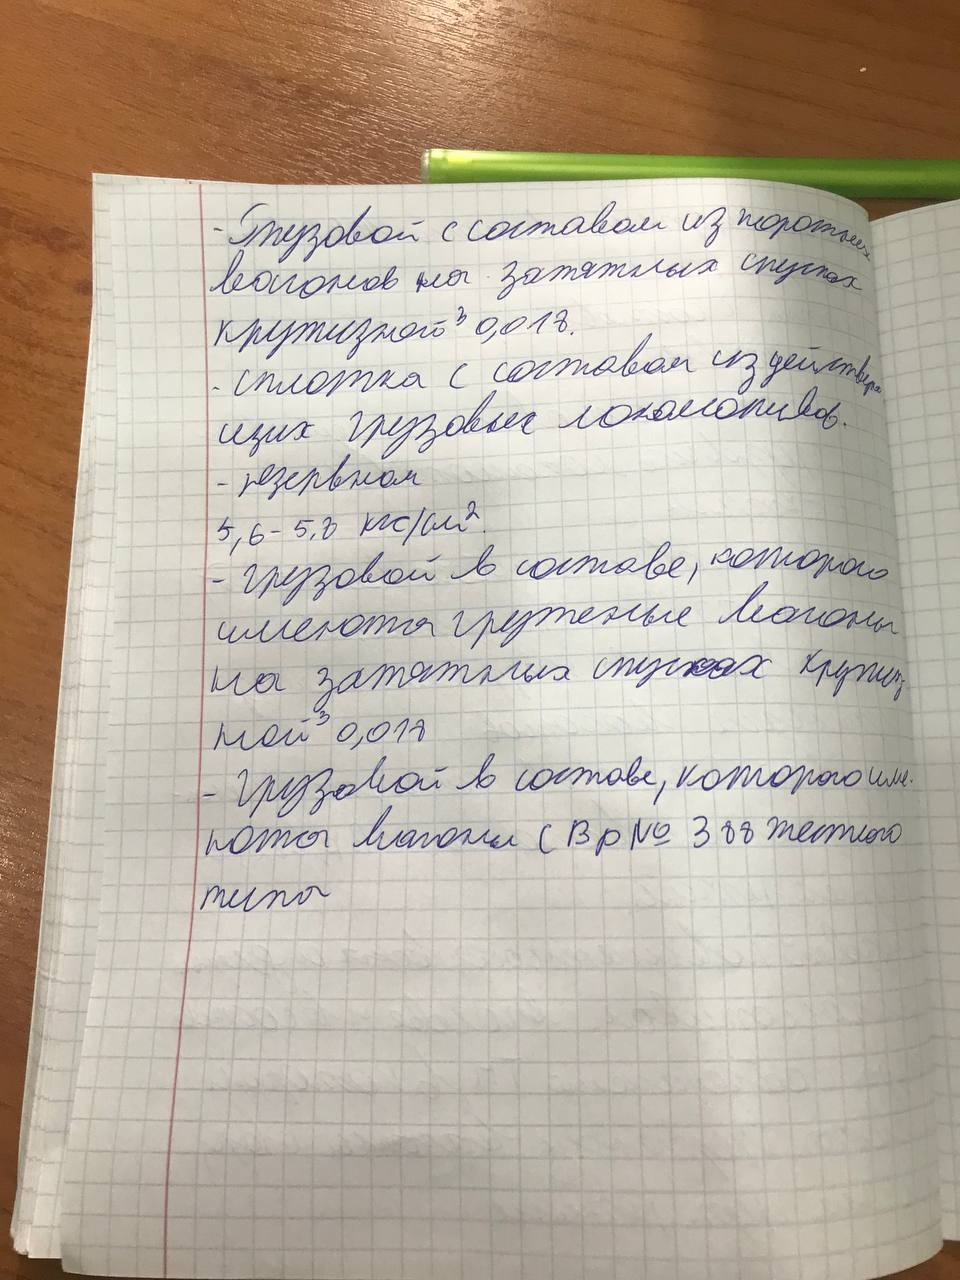 - Грузовой с составом из порожних
вагонов на затяжных спусках
крутизной ³ 0,018.
- сплотка с составом из действую
щих грузовых локомотивов.
- резервном
5,6-5,8 кгс/см².
- грузовой в составе, которого
имеются груженые вагоны
на затяжных спусках крутиз
ной ³ 0,018
- грузовой в составе, которого име-
ются вагоны с Вр № 388 жесткого
типа